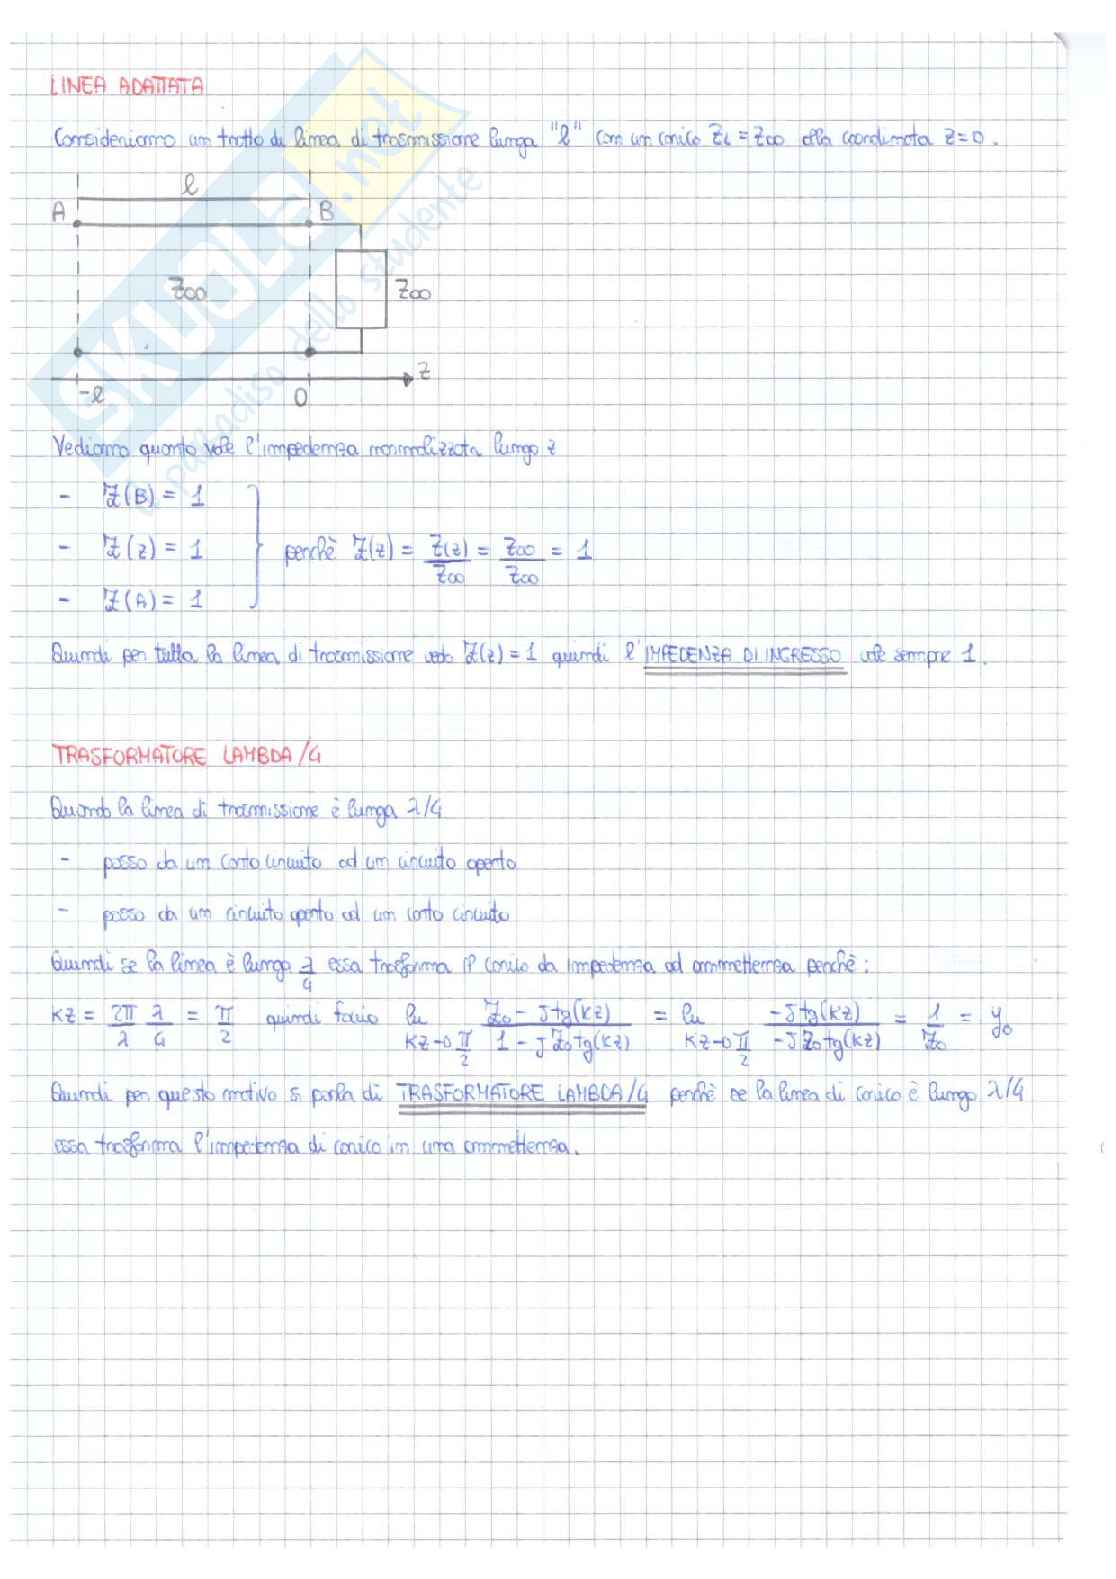 LINEA ADATTATA
Consideriamo un tratto di linea di trasmissione lunga "l" con un carico ZL = Z∞ alla coordinata z=0.
l
A B
Z∞ Z∞
z
-l 0
Vediamo quanto vale l'impedenza normalizzata lungo z
- Z(B) = 1
- Z(z) = 1 } perchè Z(z) = Z(z)/Z∞ = Z∞/Z∞ = 1
- Z(A) = 1
Quindi per tutta la linea di trasmissione vedo Z(z) = 1 quindi l'IMPEDENZA DI INGRESSO vale sempre 1.
TRASFORMATORE LAMBDA/4
Quando la linea di trasmissione è lunga λ/4
- passo da un corto circuito ad un circuito aperto
- passo da un circuito aperto ad un corto circuito
Quindi se la linea è lunga λ/4 essa trasforma il carico da impedenza ad ammettenza perchè:
KZ = 2π/λ λ/4 = π/2 quindi faccio lim KZ→π/2 (Z0 - Jtg(KZ))/(1 - JZ0tg(KZ)) = lim KZ→π/2 (-Jtg(KZ))/(-JZ0tg(KZ)) = 1/Z0 = y0
Quindi per questo motivo si parla di TRASFORMATORE LAMBDA/4 perchè se la linea di carico è lunga λ/4
essa trasforma l'impedenza di carico in una ammettenza.
SKUOLA.net
il paradiso dello studente